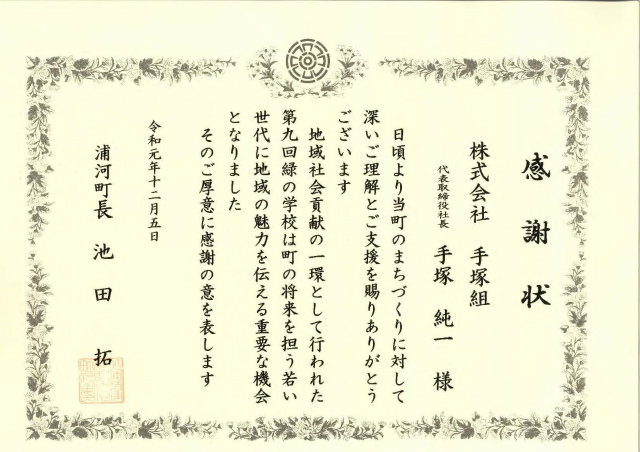 感謝状
株式会社 手塚組
代表取締役社長 手塚 純一 様
日頃より当町のまちづくりに対して
深いご理解とご支援を賜りありがとう
ございます
地域社会貢献の一環として行われた
第九回緑の学校は町の将来を担う若い
世代に地域の魅力を伝える重要な機会
となりました
そのご厚意に感謝の意を表します
令和元年十二月五日
浦河町長 池田 拓